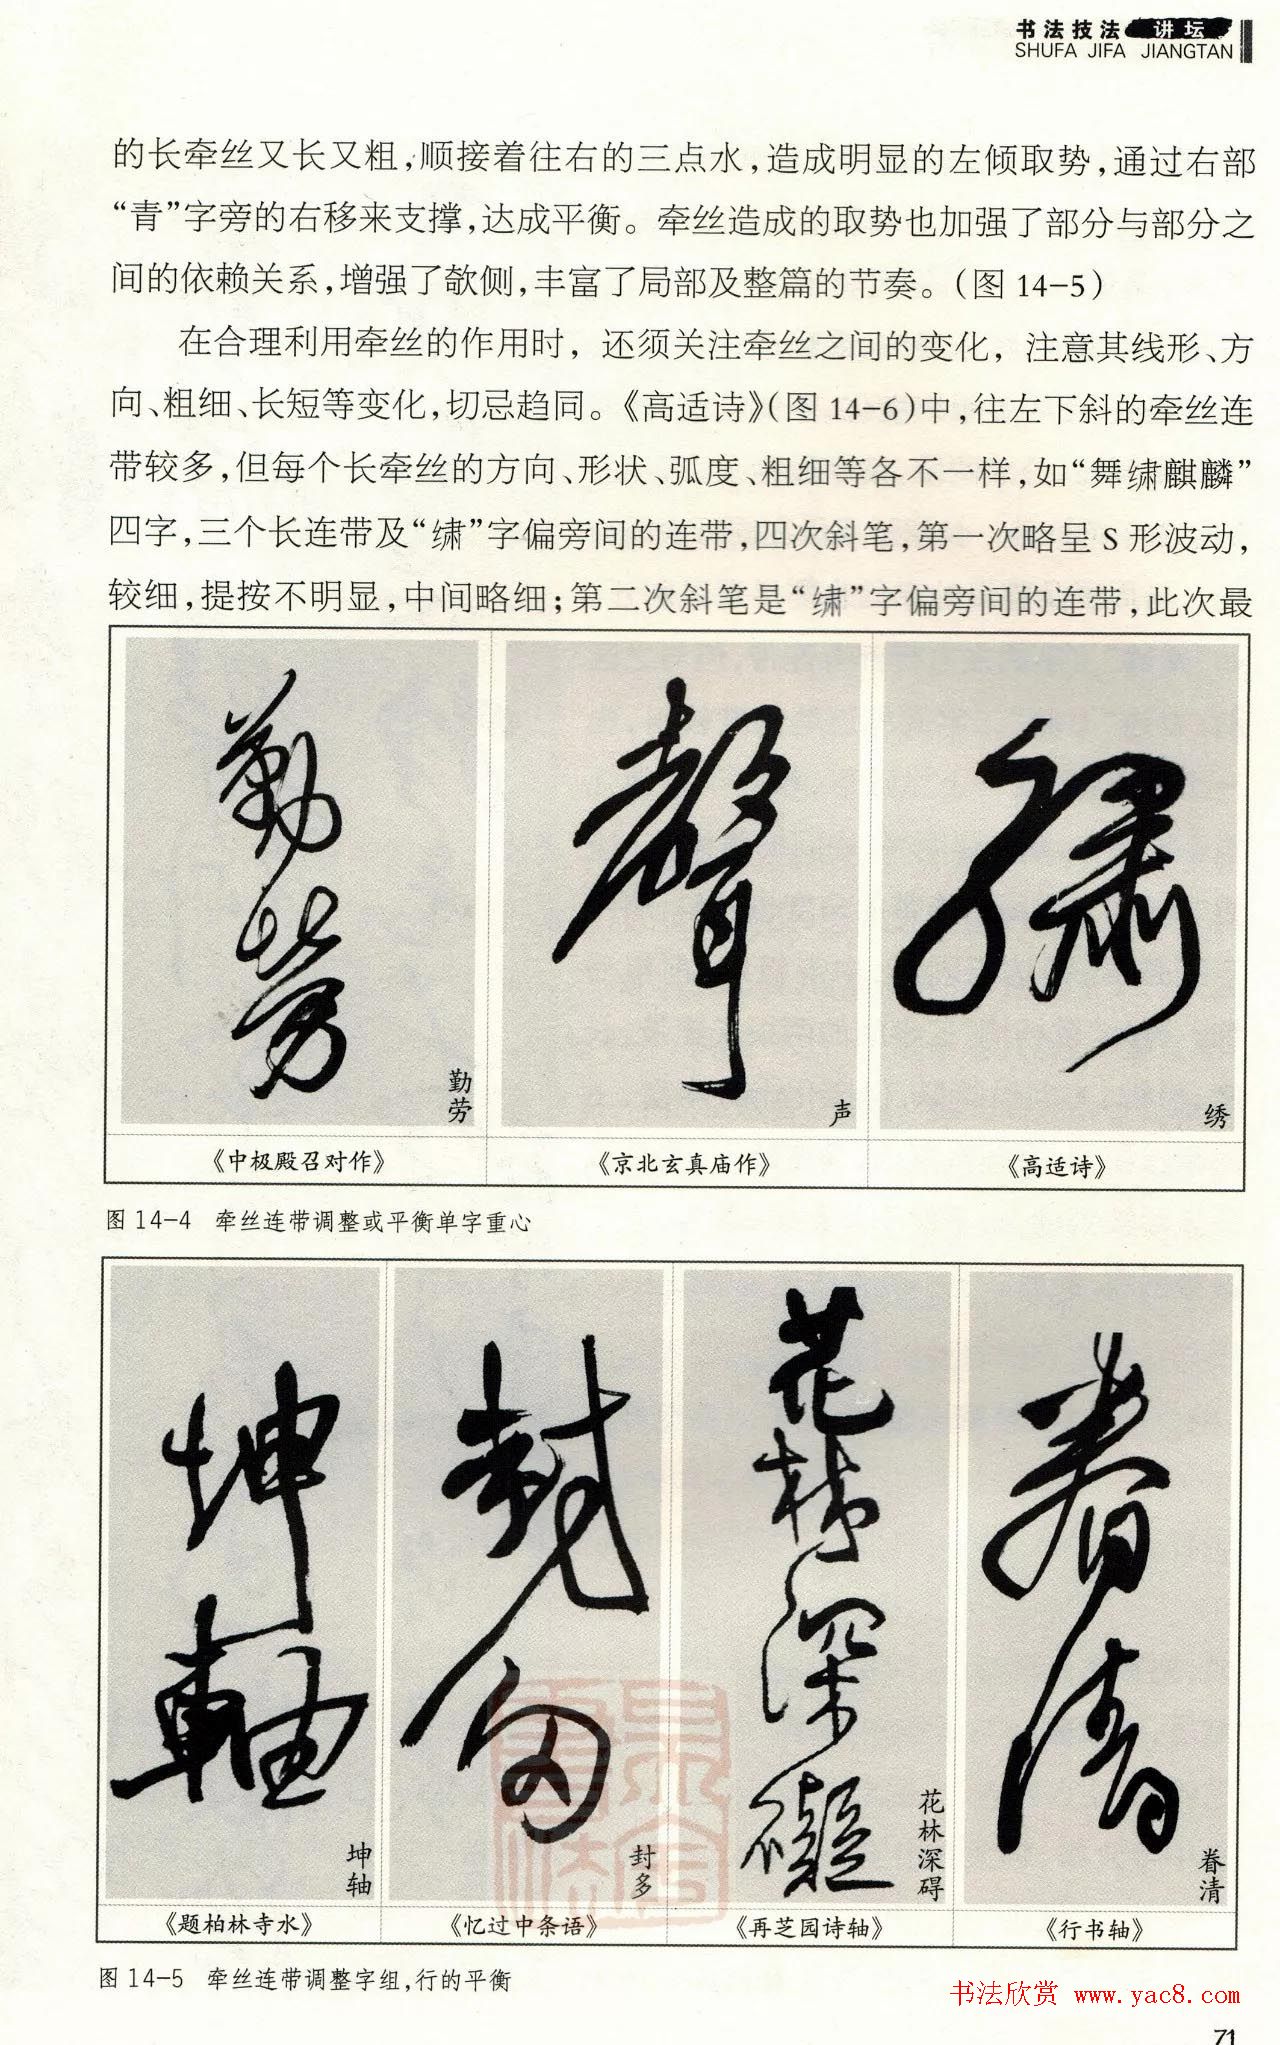 书法技法 讲坛
SHUFA JIFA JIANGTAN
的长牵丝又长又粗,顺接着往右的三点水,造成明显的左倾取势,通过右部
“青”字旁的右移来支撑,达成平衡。牵丝造成的取势也加强了部分与部分之
间的依赖关系,增强了欹侧,丰富了局部及整篇的节奏。(图 14-5)
在合理利用牵丝的作用时,还须关注牵丝之间的变化,注意其线形、方
向、粗细、长短等变化,切忌趋同。《高适诗》(图 14-6)中,往左下斜的牵丝连
带较多,但每个长牵丝的方向、形状、弧度、粗细等各不一样,如“舞繡麒麟”
四字,三个长连带及“繡”字偏旁间的连带,四次斜笔,第一次略呈 S 形波动,
较细,提按不明显,中间略细;第二次斜笔是“繡”字偏旁间的连带,此次最
勤劳
聲
繡
勤劳
声
绣
《中极殿召对作》
《京北玄真庙作》
《高适诗》
图 14-4 牵丝连带调整或平衡单字重心
坤軸
封多
花林深礙
眷清
坤轴
封多
花林深碍
眷清
《题柏林寺水》
《忆过中条语》
《再芝园诗轴》
《行书轴》
图 14-5 牵丝连带调整字组,行的平衡
书法欣赏 www.yac8.com
71